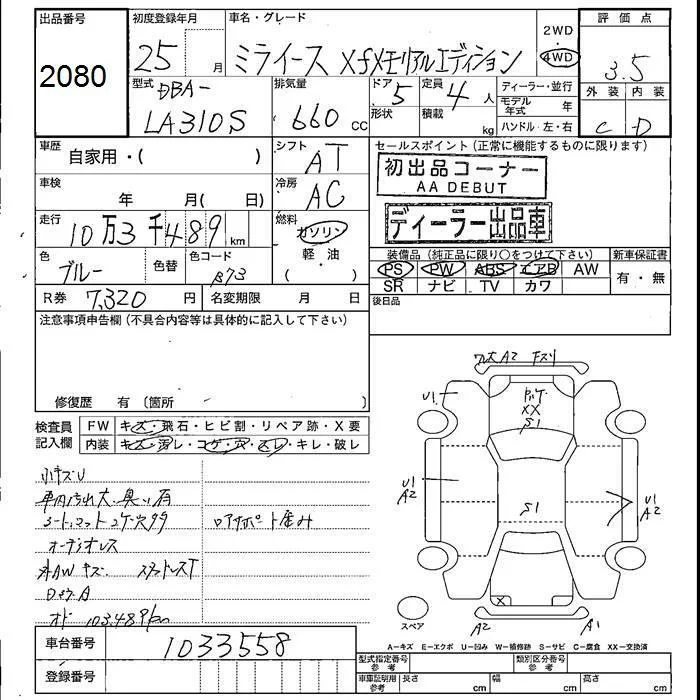 出品番号 初度登録年月 車名・グレード 2WD 評価点
2080 25 月 ミライース XfメモリアルエディSション 4WD 3.5
外装 内装
C D
型式 DBA- 排気量 ドア 定員 ディーラー・並行
LA310S 660 cc 5 形状 4 人 モデル年式 年
積載 kg ハンドル 左・右
車歴 自家用・( ) シフト AT セールスポイント (正常に機能するものに限ります)
初出品コーナー
AA DEBUT
車検 年 月( 日) 冷房 AC
ディーラー出品車
走行 10万3千489 km 燃料 ガソリン
軽・油
( )
色 ブルー 色替 色コード B73
装備品 (純正品に限り○をつけて下さい) 新車保証書
PS PW ABS エアB AW 有・無
SR ナビ TV カワ
R券 7,320 円 名変期限 月 日 後日品
注意事項申告欄 (不具合内容等は具体的に記入して下さい)
修復歴 有 〔箇所 〕
検査員記入欄 FW キズ・飛石・ヒビ割・リペア跡・X要
内装 キズ・汚レ・コゲ・穴・スレ・キレ・破レ
小キズU
車内汚れ大・臭い有
シートマットコゲ穴多々 ロアサポート歪み
オーディオレス
社外AWキズ スタッドレスT
オド 103,489km
A2
U1
XX
S1
U1
A2
S1
U1
A2
X
スペア
A2
A1
A=キズ E=エクボ U=凹み W=補修跡 S=サビ C=腐食 XX=交換済
車台番号 1033558
登録番号
型式指定番号 参考 類別区分番号 参考
車庫証明用 参考 長さ cm 幅 cm 高さ cm